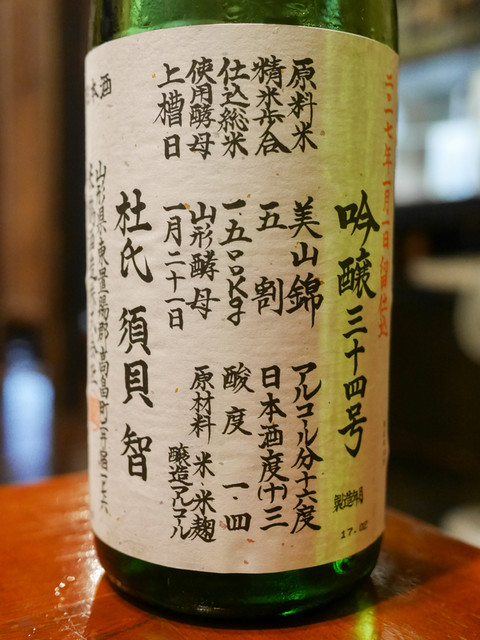 二〇一七年一月一日留仕込
吟醸三十四号
製造年月
17.02
原料米 美山錦 アルコール分十六度
精米歩合 五割 日本酒度(十)三
仕込総米 一五〇〇Kg 酸度 一・四
使用酵母 山形酵母 原材料 米・米麹
上槽日 一月二十一日 醸造アルコール
杜氏 須貝 智
山形県東置賜郡高畠町二井宿一七六
本酒